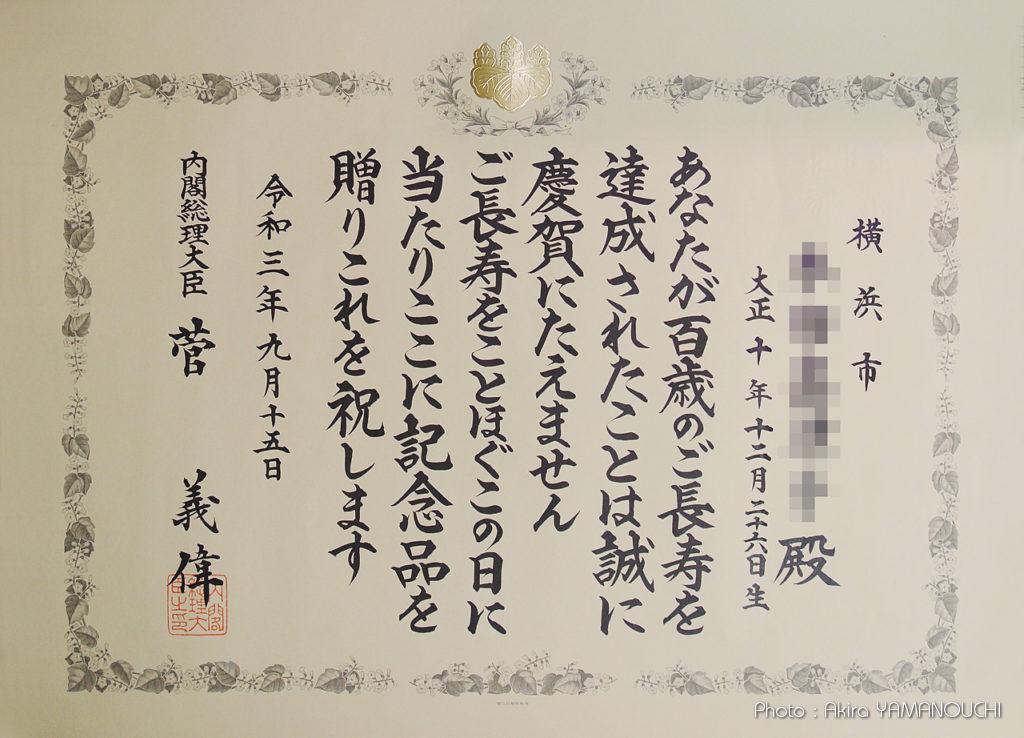 横浜市
殿
大正十年十二月二十六日生
あなたが百歳のご長寿を
達成されたことは誠に
慶賀にたえません
ご長寿をことほぐこの日に
当たりここに記念品を
贈りこれを祝します
令和三年九月十五日
内閣総理大臣 菅 義偉
内閣総理大臣之印
Photo : Akira YAMANOUCHI